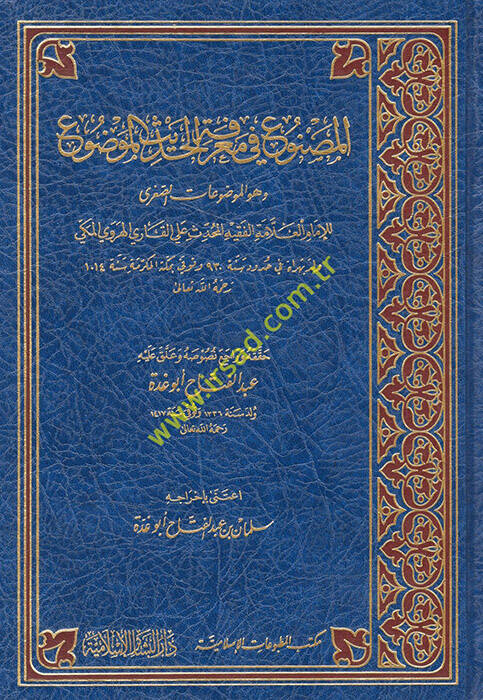 المصنوع في معرفة الحديث الموضوع
وهو الموضوعات الصغرى
للإمام العلامة الفقيه المحدث علي القاري الهروي المكي
ولد بهراة في حدود سنة ٩٣٠ وتوفي بمكة المكرمة سنة ١٠١٤
رحمه الله تعالى
حققه وراجع نصوصه وعلق عليه
عبد الفتاح أبو غدة
ولد سنة ١٣٣٦ وتوفي سنة ١٤١٧
رحمه الله تعالى
اعتنى بإخراجه
سلمان بن عبد الفتاح أبو غدة
مكتب المطبوعات الإسلامية
دار البشائر الإسلامية
www.irsad.com.tr